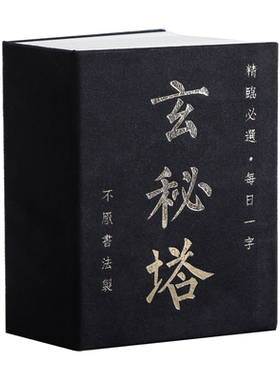 精臨必選·每日一字
玄秘塔
不厭書法製